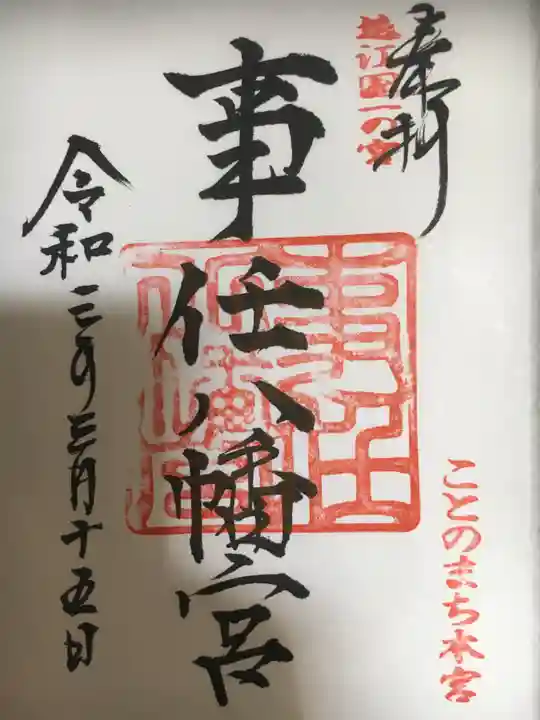 奉拝
遠江国一の宮
ことのまち本宮
事任八幡宮
令和三年三月十五日